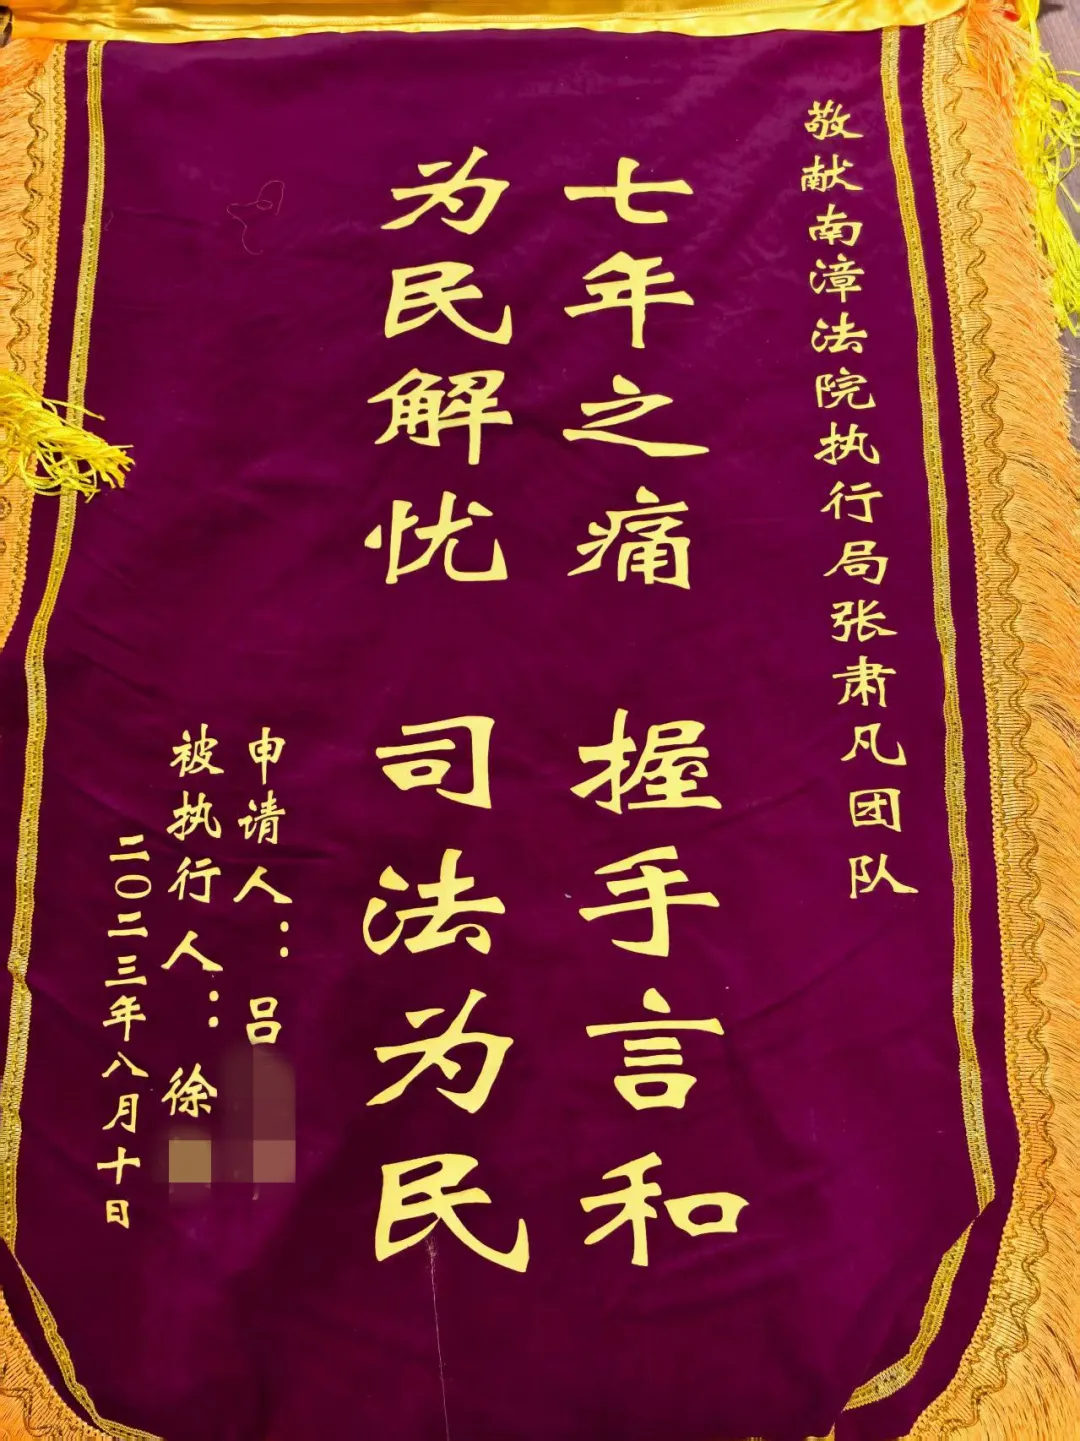 敬献南漳法院执行局张肃凡团队
七年之痛 握手言和
为民解忧 司法为民
申请人：吕
被执行人：徐
二〇二三年八月十日